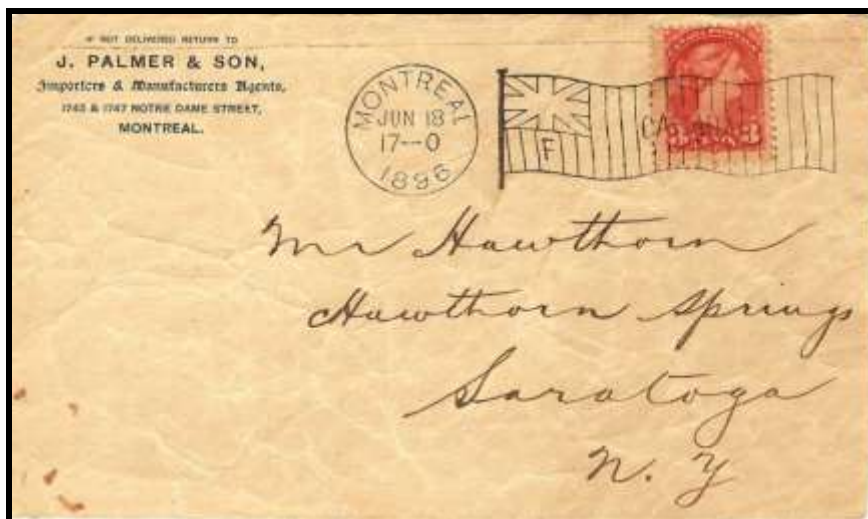 IF NOT DELIVERED RETURN TO
J. PALMER & SON,
Importers & Manufacturers Agents,
1745 & 1747 NOTRE DAME STREET,
MONTREAL.
MONTREAL
JUN 18
17--0
1896
F
3 3
Mr Hawthorn
Hawthorn Springs
Saratoga
N. Y